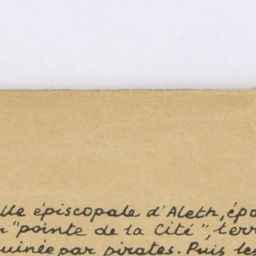 lle épiscopale d'Aleth, épo
"pointe de la Cité", terr
uinée par pirates. Puis les